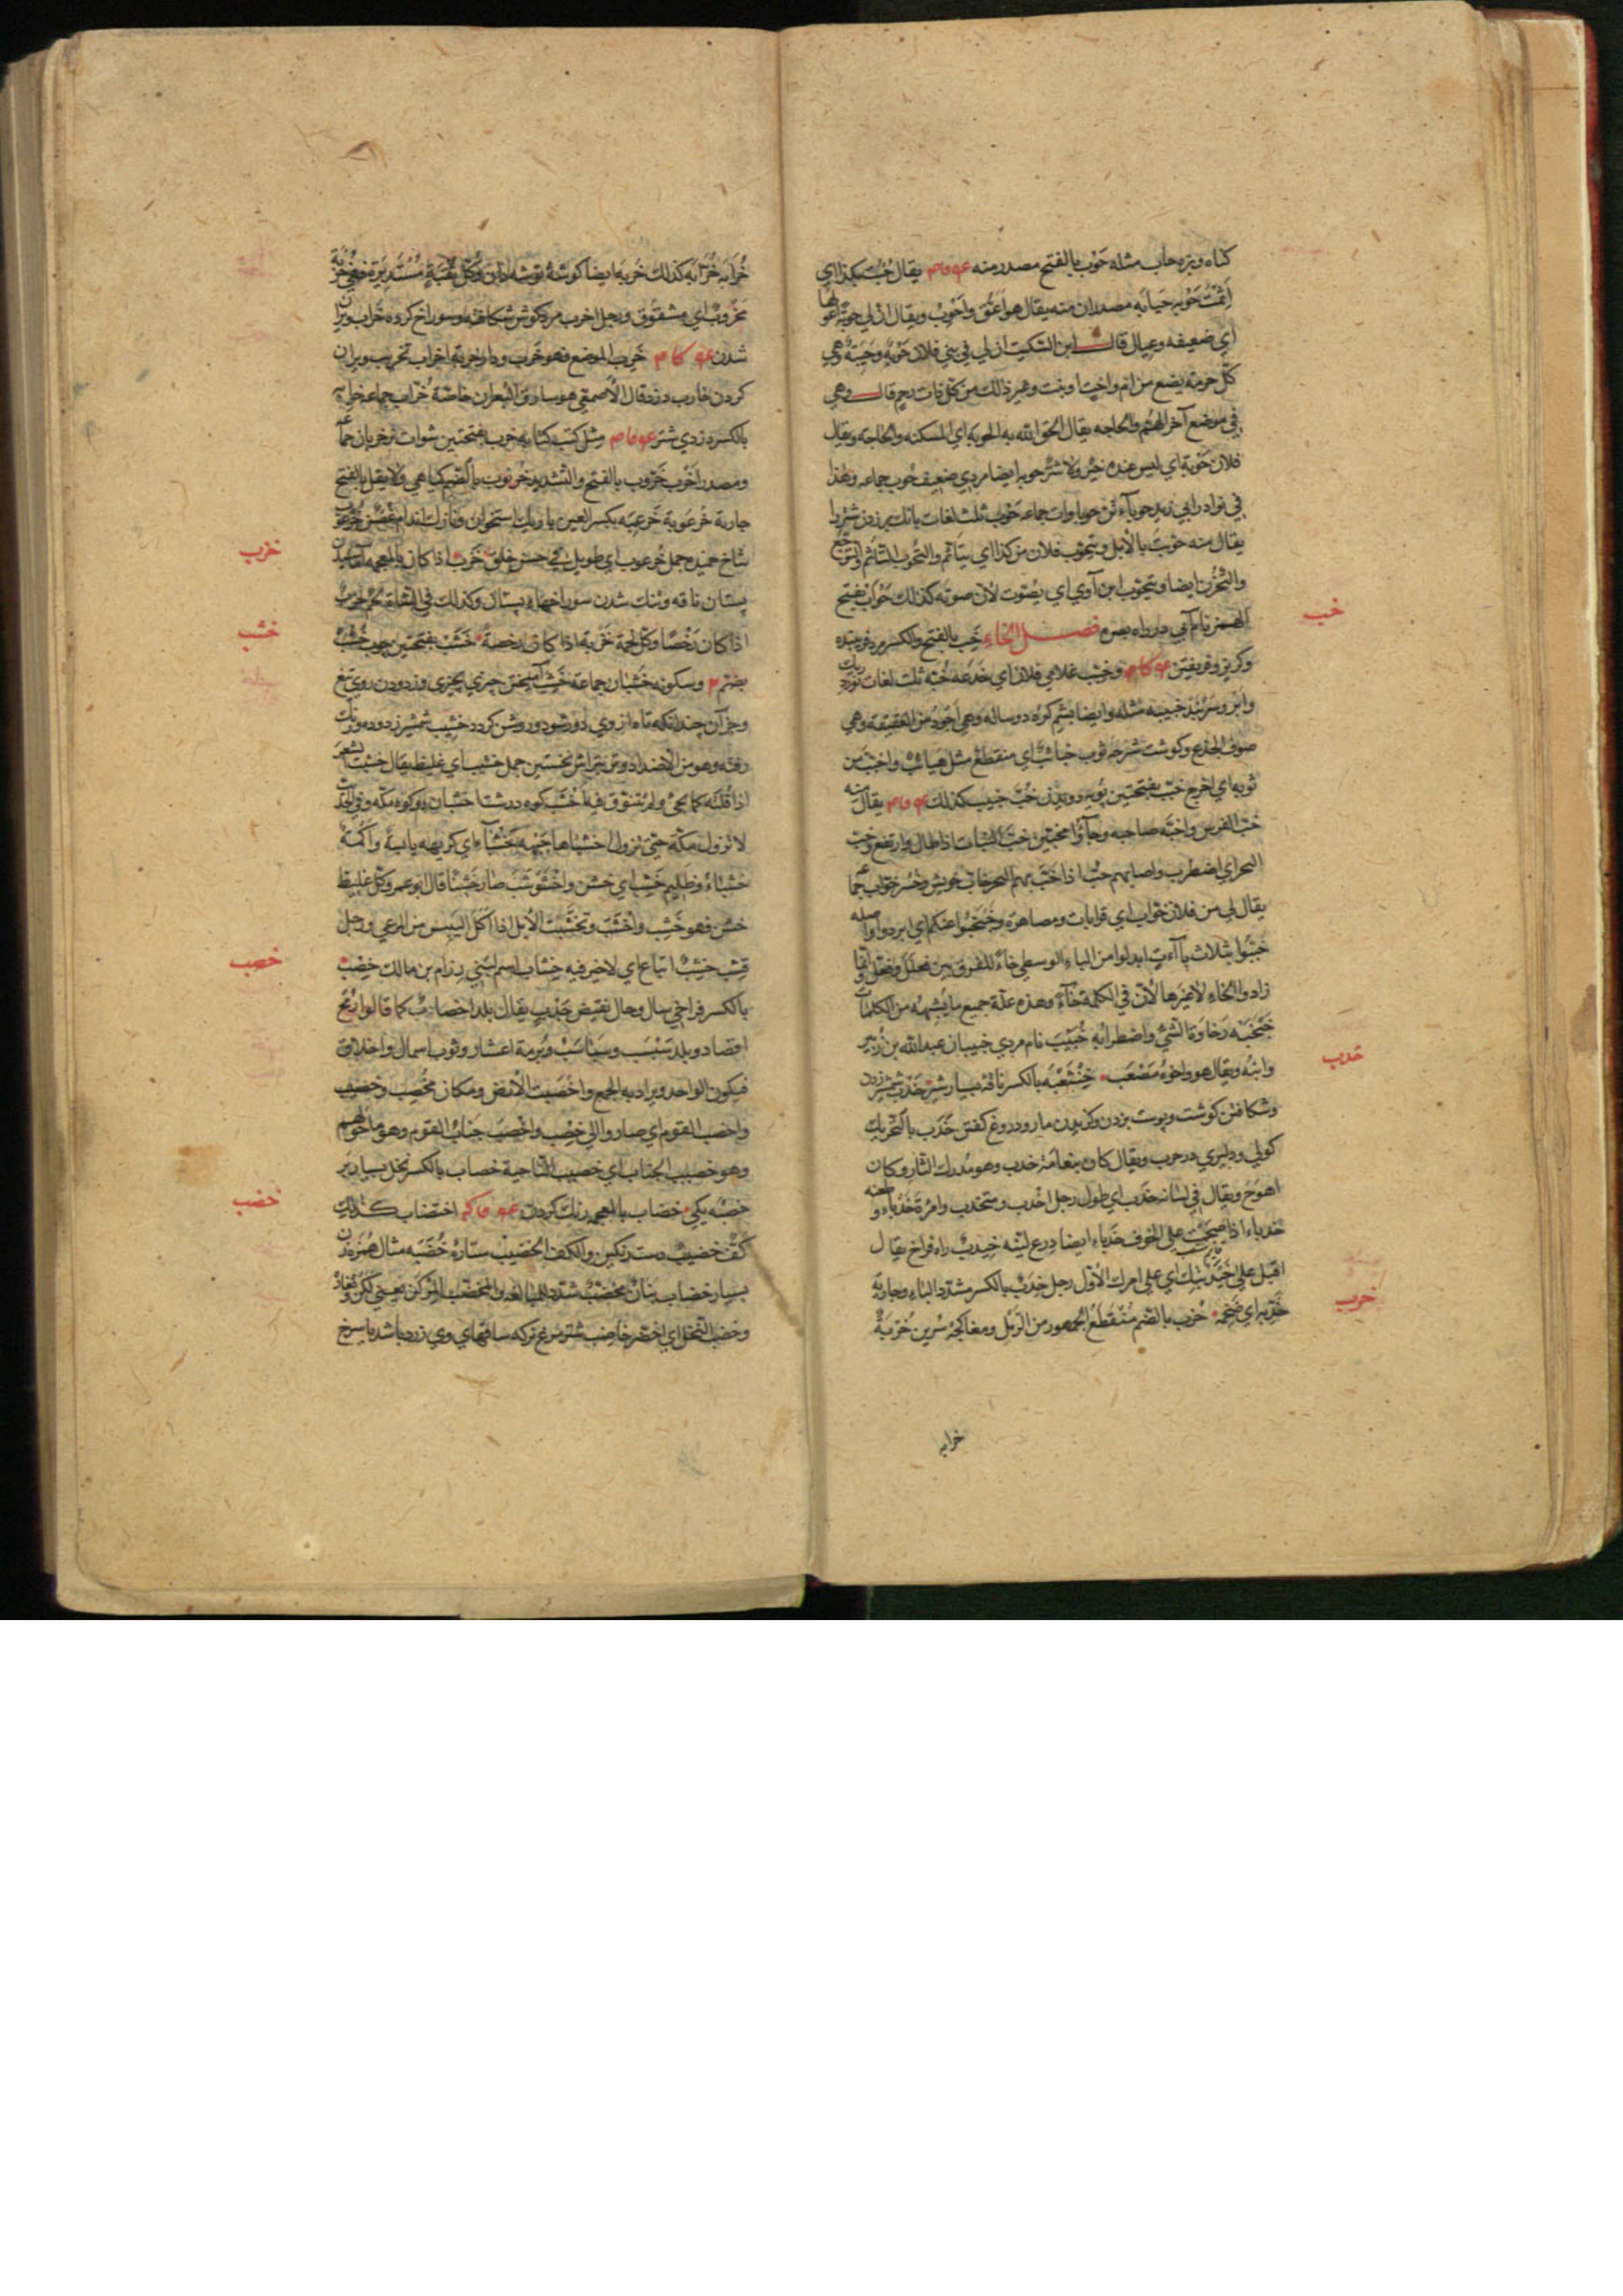 كناه وبزه حاب مثله حَوْب بالفتح مصدر منه يقال حُبْتُ بكذا اي
اثمت حوبه حيابه مصدران منه يقال هو اعق واحوب ويقال ان لي حوبة اعولها
اي ضعيفه وعيال قال ابن السكيت ان لي في بني فلان حوبة وحيبة وهي
كل حرمة يضيع من ام واخت او بنت وغير ذلك من كل ذات رحم قال وهي
في موضع آخر الهم والحاجه يقال الحق الله به الحوبه اي المسكنه والحاجة ويقال
فلان حوبة اي ليس عنده خير ولا شر حوبه ايضا مردي ضعيف حوب جماعه وهذا
في نوادر ابي زيد حوبآء تن حوباوات جماعه حوب ثلث لغات بانك برزدن شتر را
يقال منه حوبت بالابل ويتحوب فلان من كذا اي يتأثم والتحوب التأثم والتوجع
والتحزن ايضا ويتحوب ابن آوي اي يصوت لان صوته كذلك حوأب بفتح
الهمز نام آبي در راه بصره فصل الخاء خب بالفتح والكسر مرد فريبنده
وكربز وفريفتن وخبب غلامي فلان اي خدعه خبه ثلث لغات
وابر وسربند خبيبه مثله وايضا پشم كره دوساله وهي اجود من العقيقة وهي
صوف الجذع وكوشت شرحه ثوب خبائب اي متقطع مثل هبائب واختب من
ثوبه اي اخرج خبب بفتحتين پويه دويدن خب خبيب كذلك يقال منه
خب الفرس واخبه صاحبه وجاؤا مخبين خب النبات اذا طال وارتفع وخب
البحر اي اضطرب واصابهم خب اذا خب بهم البحر خاب خويش وخسر خواب جما
يقال لي من فلان خواب اي قرابات ومصاهرة وخبخبوا عنكم اي ابردوا واصله
خببوا بثلاث باآت ابدلوا من الباء الوسطي خاء للفرق بين فعلل وفعل وانما
زادوا الخاء لا غيرها لان في الكلمة خآء وهذه علة جميع ما يشبهه من الكلمات
خبخبه رخاوة الشئ واضطرابه خبيب نام مردي خبيبان عبدالله بن زبير
وابنه ويقال هو واخوه مصعب خنثعبه بالكسر ناقه بسيار شير خدب شمشير زدن
وشكافتن كوشت وپوست بزدن وكزيدن مار ودروغ كفتن خدب بالتحريك
كولي ودليري در حرب ويقال كان بنعامة خدب وهو مدرك الثار وكان
اهوج ويقال في لسانه خدب اي طول رجل اخدب ومتخدب وامرأة خدباء وطعنه
خدباء اذا هجمت على الجوف خدباء ايضا درع لينه خيدب راه فراخ يقال
اقبل على خيدبتك اي على امرك الاول رجل خدب بالكسر مشدد الباء وجاريه
خدبه اي ضخمه خرب بالضم منقطع الجمهور من الرمل ومغاكچه سرين خربة
خب
خدب
خرب
خرابه
خرابه خرابه كذلك خربه ايضا كوشه توشه دان وكل ثقبة مستديرة فهي خربة
مخروب اي مشقوق ورجل اخرب مرد كوش شكافته وسوراخ كرده خراب ويران
شدن خرب الموضع فهو خرب ودار خربة اخراب تخريب ويران
كردن خارب دزد قال الاصمعي هو سارق البعران خاصة خراب جماعه خرابه
بالكسر دزدي شتر مثل كتب كتابه خرب بفتحتين شوات نر خربان جماعه
ومصدر اخرب خروب بالفتح والتشديد خرنوب بالضم كياهي ولا يقل بالفتح
جارية خرعوبة خرعبه بكسر العين باريك استخوان ونازك اندام غصن خرعوب
شاخ خميده جمل خرعوب اي طويل في حسن خلق خزب اذا كان بالمعجمه آماسيدن
پستان ناقه وتنك شدن سوراخهاء پستان وكذلك في الشاة لحم خزب
اذا كان رخصا وكل لحمة خزبة اذا كانت رخصة خشب بفتحتين چوب خشب
بضم وسكونه خشبان جماعة خشب آميختن چيزي بچيزي وزدودن روي تيغ
وجز آن چندانكه تاه از وي دور شود وروشن كردد خشيب شمشير زدوده وزنك
رفته وهو من الاضداد وتير بتراش نخستين جمل خشيب اي غليظ يقال خشبت الشعر
اذا قلته كما يجئ ولم تتنوق فيه اخشب كوه درشت اخشبان دو كوه مكه وفي الحديث
لا تزول مكة حتى تزول اخشباها جبهة خشباء اي كريهه يابسة واكمة
خشباء وظليم خشب اي خشن واخشوشب صار خشبا قال ابو عمرو كل غليظ
خشن فهو خشب واخشب وتخشبت الابل اذا اكل اليبيس من المرعي ورجل
قشب خشب اتباع اي لا خير فيه خشاب اسم لبني رزام بن مالك خصب
بالكسر فراخي سال وحال نقيض جدب يقال بلد اخصاب كما قالوا رمح
اقصاد وبلد سبسب وسباسب وبرمة اعشار وثوب اسمال واخلاق
فيكون الواحد ويراد به الجمع واخصبت الارض ومكان مخصب وخصيب
واخصب القوم اي صاروا الي خصب واخصب جناب القوم وهو ما حولهم
وهو خصيب الجناب اي خصيب الناحية خصاب بالكسر نخل بسيار بر
خصبه يكي خضاب بالمعجمه رنك كردن اختضاب كذلك
كف خضيب دست رنكين والكف الخضيب ستاره خضبه مثال همزه زن
بسيار خضاب بنان مخضب شدد للمبالغة والمخضب المركن يعني لكن ونغار
وخضب النخل اي اخضر خاضب شترمرغ نر كه ساقهاي وي زرد باشد يا سرخ
خزب
خشب
خصب
خضب